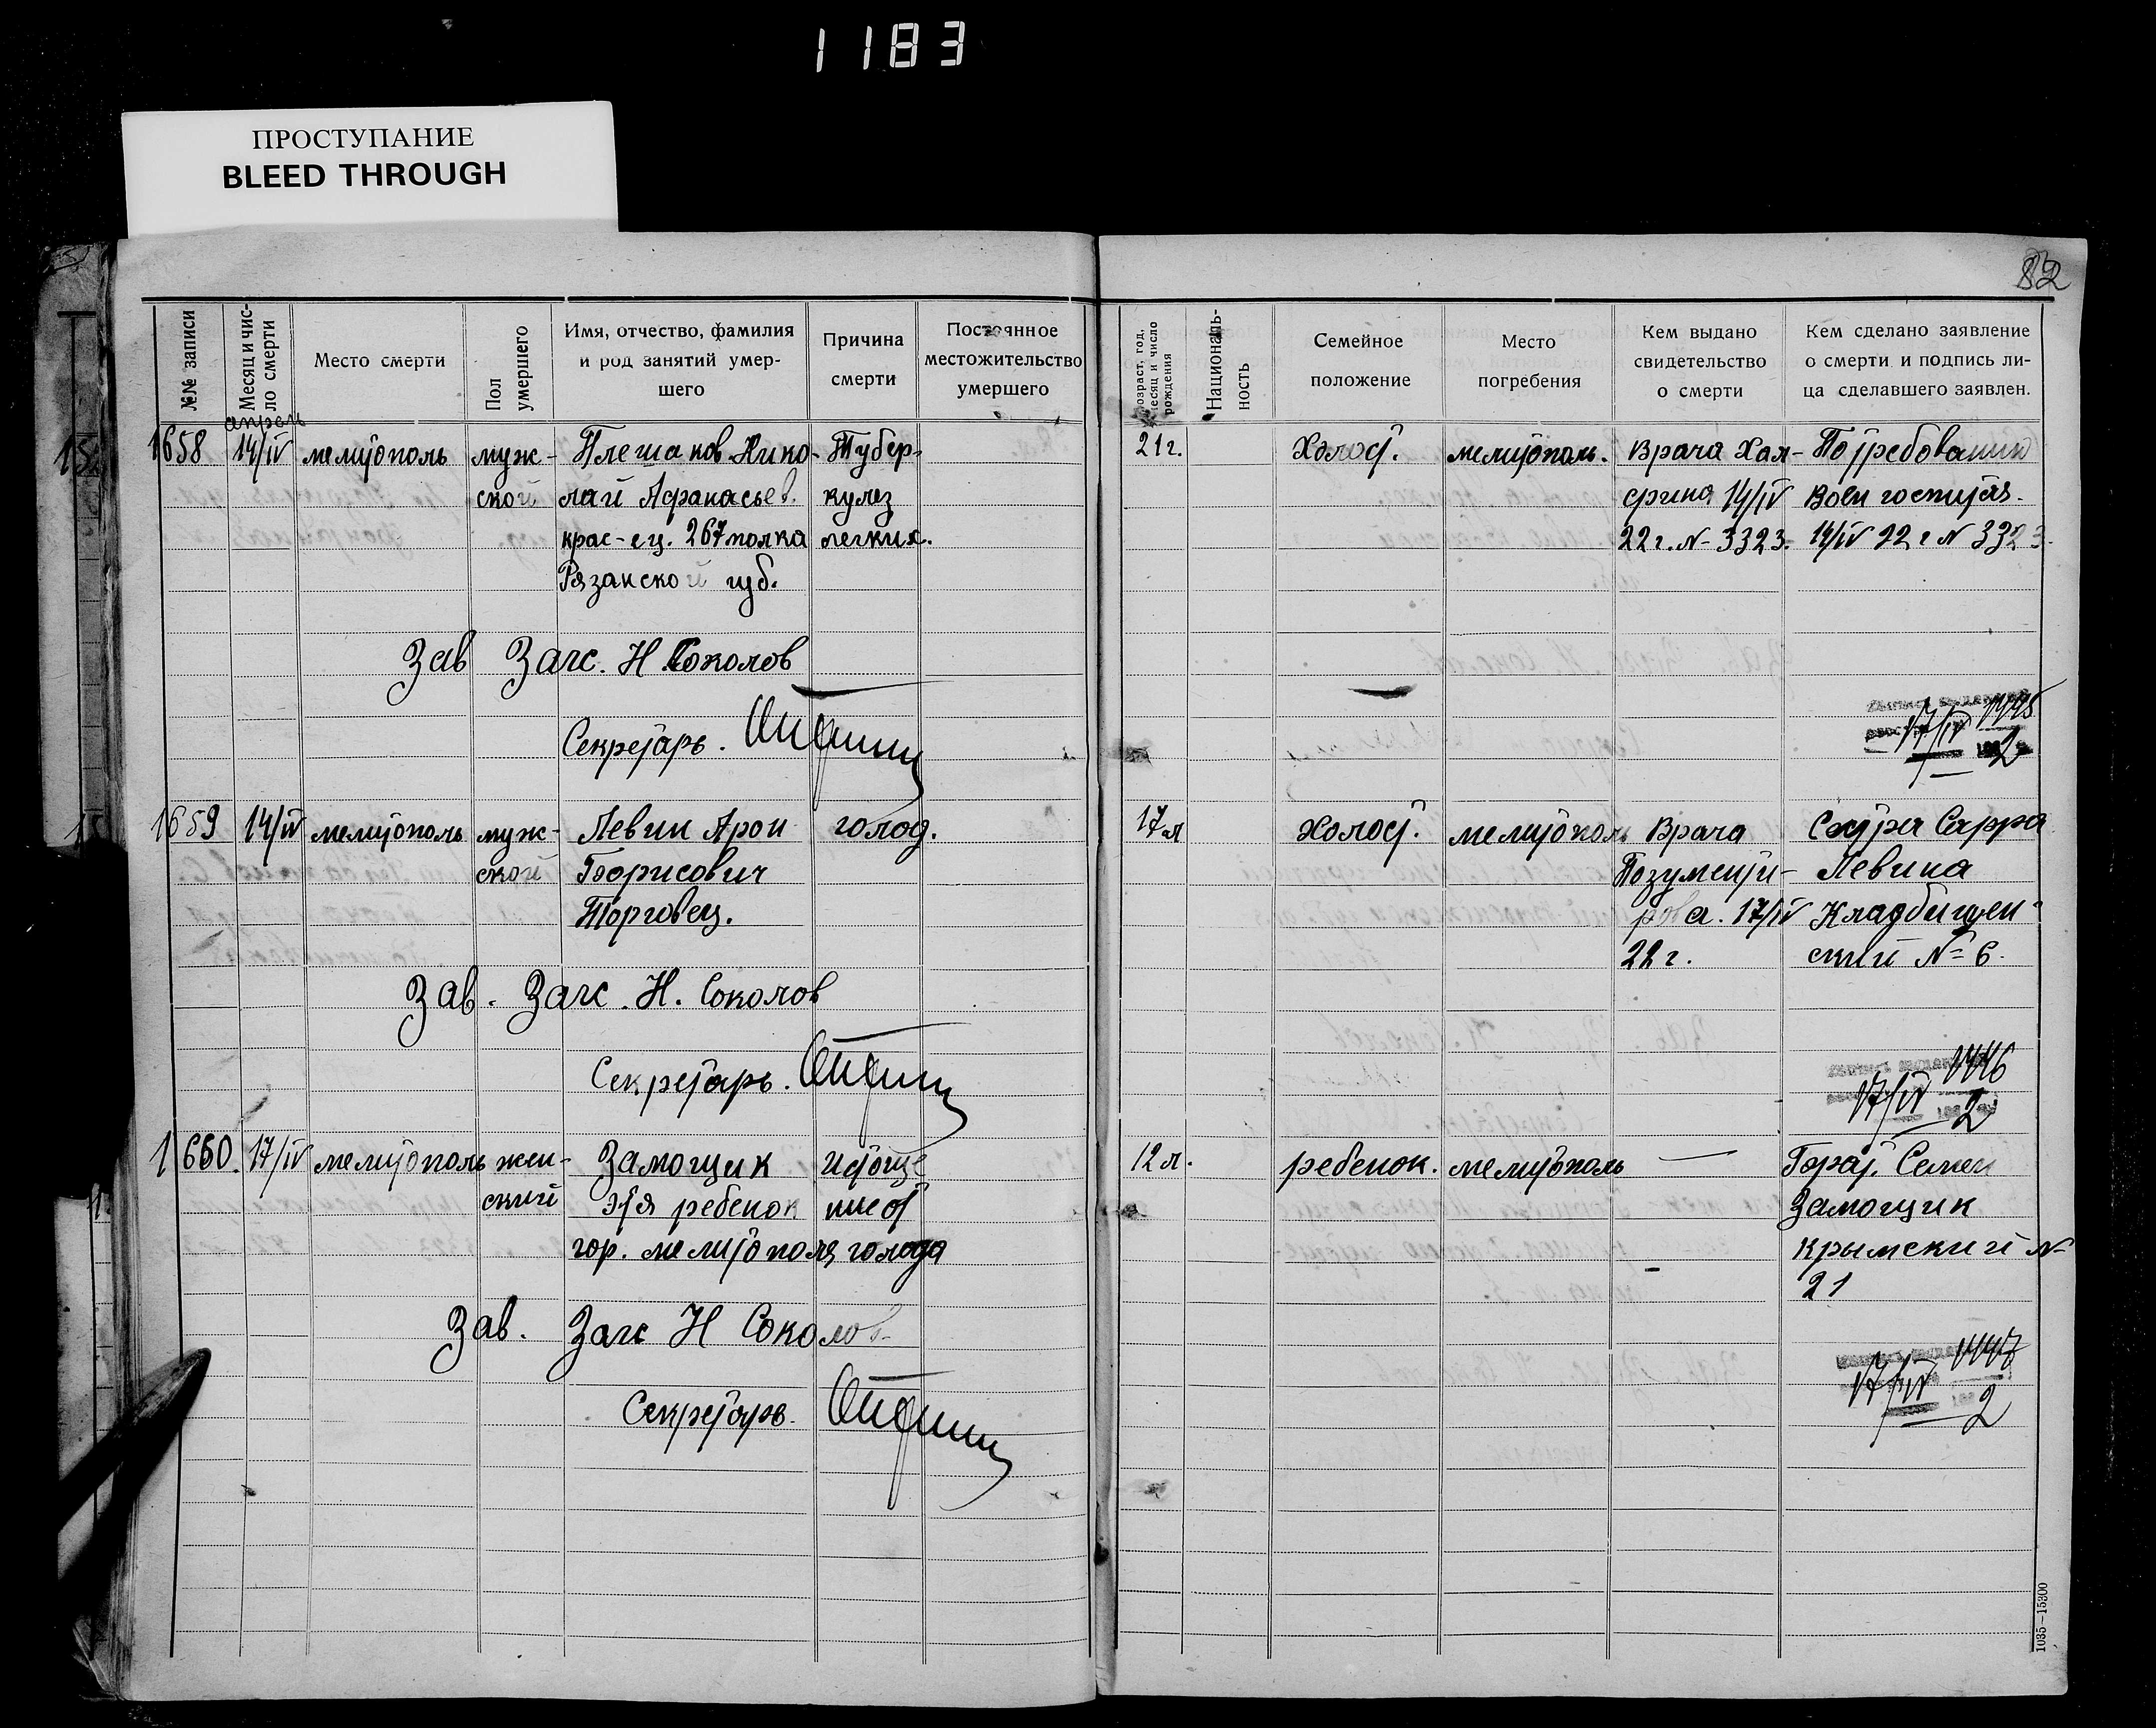 1183
ПРОСТУПАНИЕ
BLEED THROUGH
82
№№ записи
Месяц и чис-
ло смерти
Место смерти
Пол
умершего
Имя, отчество, фамилия
и род занятий умер-
шего
Причина
смерти
Постоянное
местожительство
умершего
Возраст, год,
месяц и число
рождения
Националь-
ность
Семейное
положение
Место
погребения
Кем выдано
свидетельство
о смерти
Кем сделано заявление
о смерти и подпись ли-
ца сделавшего заявлен.
апрель
1658 14/IV мелитополь муж- Плешаков Нико- Тубер- 21 г. холост. мелитополь. Врача Хал- По требованию
ской лай Афанасьев. кулез 14/IV Воен госпитал.
крас-ец. 267 полка легких. 22 г. N- 3323. 14/IV 22 г N 3323.
Рязанской губ.
Зав Загс. Н. Соколов
Секретарь.
17/IV 1445
2
1659 14/IV мелитополь муж- Левин Арон голод. 17 л холост. мелитополь Врача Сестра Сарра
ской Борисович Позументи- Левина
Торговец. рова. 17/IV Кладбищен-
22 г. ский № 6.
Зав. Загс. Н. Соколов
Секретарь.
17/IV 1446
2
1660. 17/IV мелитополь жен- Замощик истоще 12 л. ребенок. мелитополь — Брат. Семен
ский Этя ребенок ние от Замощик
гор. мелитополя голода Крымский N-
21
Зав. Загс Н Соколов
Секретарь.
17/IV 1447
2
1035—15300